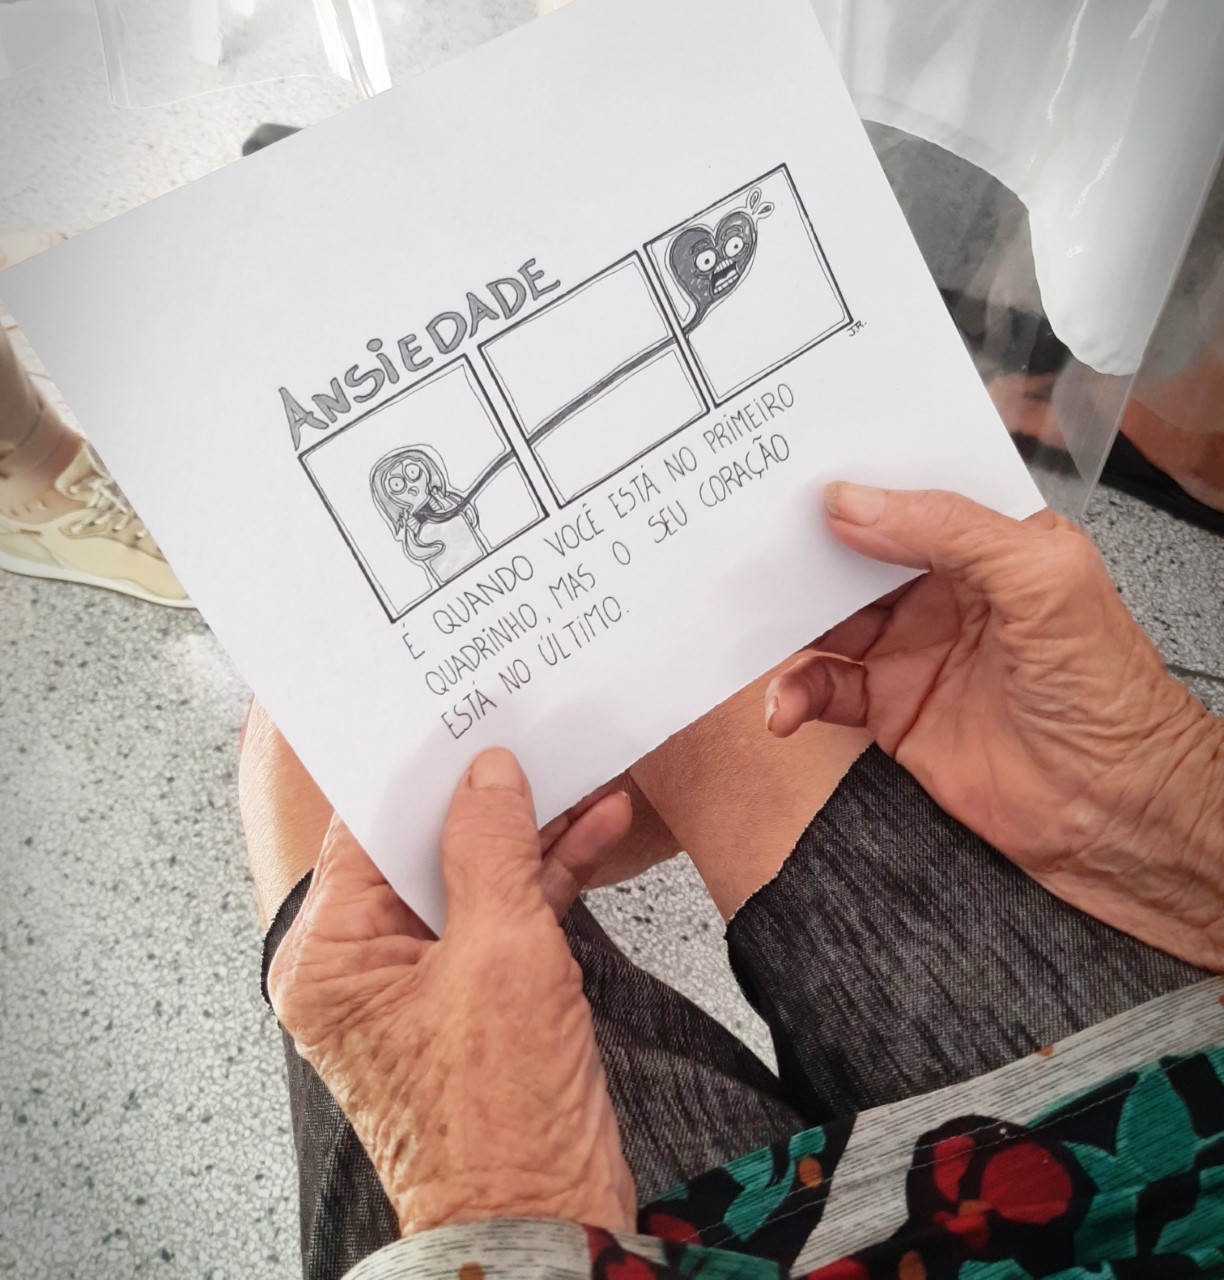 ANSiEDADE
J.R.
É QUANDO VOCÊ ESTÁ NO PRiMEiRO
QUADRiNHO, MAS O SEU CORAÇÃO
ESTÁ NO ÚLTiMO.